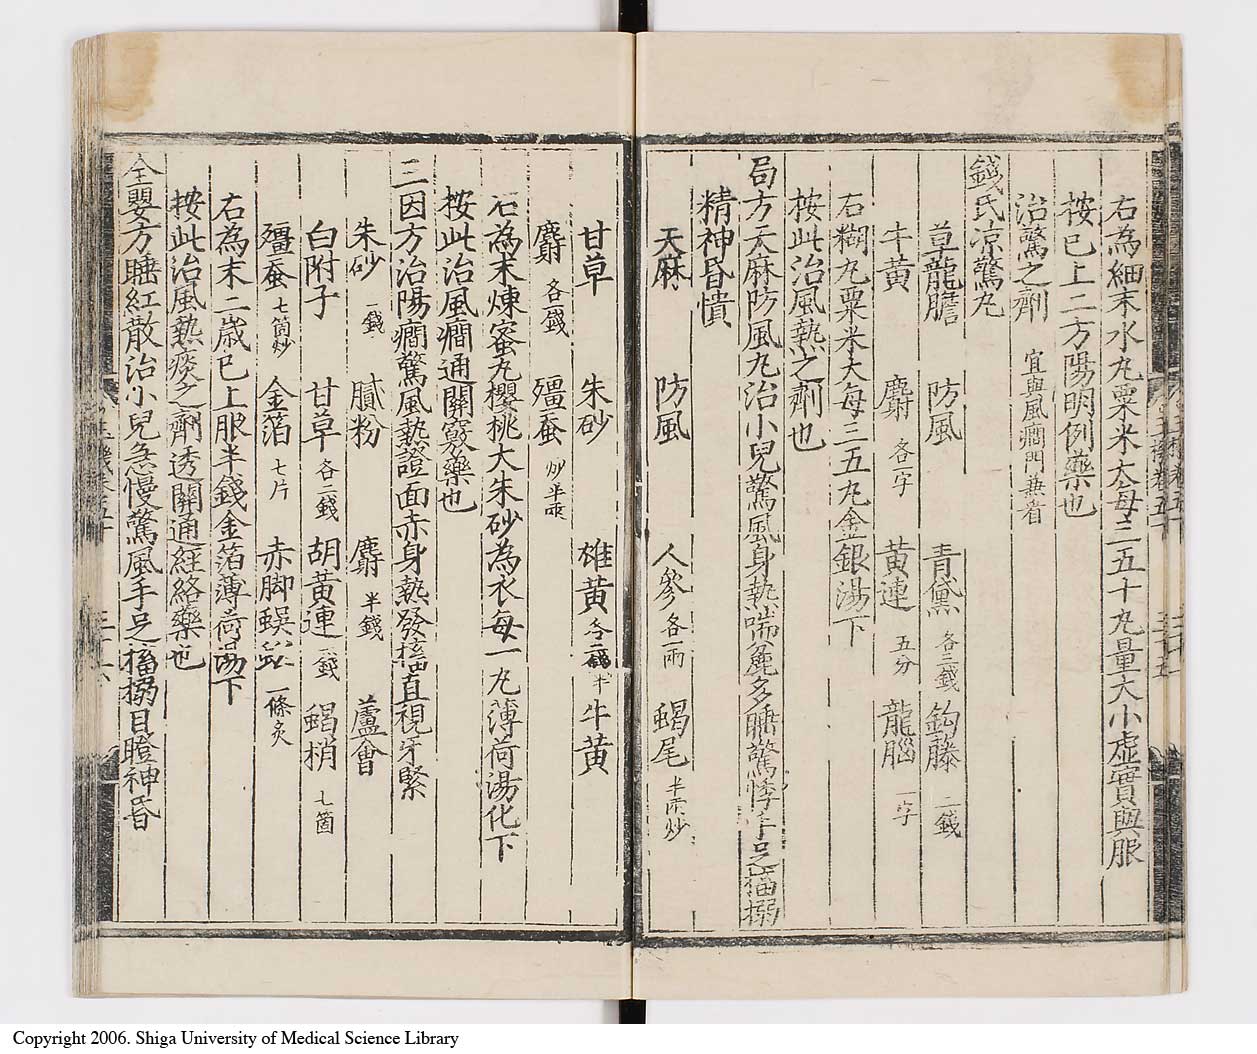 右為細末水丸粟米大每三五十丸量大小虛實與服
按已上二方陽明例藥也
治驚之劑 宜與風癇門兼看
錢氏凉驚丸
草龍膽 防風 青黛 各三錢 鈎藤 二錢
牛黃 麝 各一字 黃連 五分 龍腦 一字
右糊丸粟米大每三五丸金銀湯下
按此治風熱之劑也
局方天麻防風丸治小兒驚風身熱喘麄多睡驚悸手足搐搦
精神昏憒
天麻 防風 人參 各一兩 蝎尾 半兩炒
甘草 朱砂 雄黃 各二錢半 牛黃
麝 各一錢 殭蚕 炒半兩
右為末煉蜜丸櫻桃大朱砂為衣每一丸薄荷湯化下
按此治風癇通關竅藥也
三因方治陽癇驚風熱證面赤身熱發搐直視牙緊
朱砂 一錢 膩粉 麝 半錢 蘆會
白附子 甘草 各二錢 胡黃連 一錢 蝎梢 七箇
殭蚕 七箇炒 金箔 七片 赤脚蜈蚣 一條炙
右為末二歲已上服半錢金箔薄荷湯下
按此治風熱痰之劑透關通經絡藥也
全嬰方睡紅散治小兒急慢驚風手足搐搦目瞪神昏
Copyright 2006. Shiga University of Medical Science Library